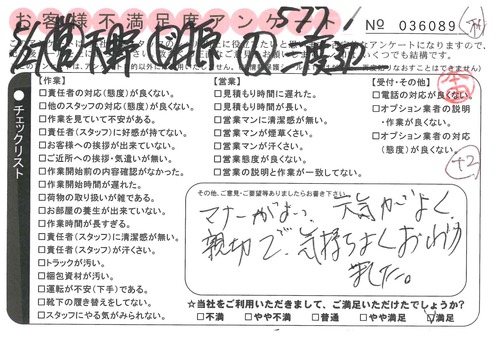 お客様不満足度アンケート
577
No 036089
チェックリスト
【作業】
□責任者の対応(態度)が良くない。
□他のスタッフの対応(態度)が良くない。
□作業を見ていて不安がある。
□責任者(スタッフ)に好感が持てない。
□お客様への挨拶が出来ていない。
□ご近所への挨拶・気遣いが無い。
□作業開始前の内容確認がなかった。
□作業開始時間が遅れた。
□荷物の取り扱いが雑である。
□お部屋の養生が出来ていない。
□作業時間が長すぎる。
□責任者(スタッフ)に清潔感が無い。
□責任者(スタッフ)が汗くさい。
□トラックが汚い。
□梱包資材が汚い。
□運転が不安(下手)である。
□靴下の履き替えをしてない。
□スタッフにやる気がみられない。
【営業】
□見積もり時間に遅れた。
□見積もり時間が長い。
□営業マンに清潔感が無い。
□営業マンが煙草くさい。
□営業マンが汗くさい。
□営業態度が良くない。
□営業の説明と作業が一致してない。
【受付・その他】
□電話の対応が良くない。
□オプション業者の説明
・作業が良くない。
□オプション業者の対応
(態度)が良くない。
+2
その他、ご意見・ご要望等ありましたらお書き下さい。
マナーがよい、天気がよく、
親切で、気持ちよく
ました。
☆当社をご利用いただきまして、ご満足いただけたでしょうか?
□不満 □やや不満 □普通 □やや満足 □満足